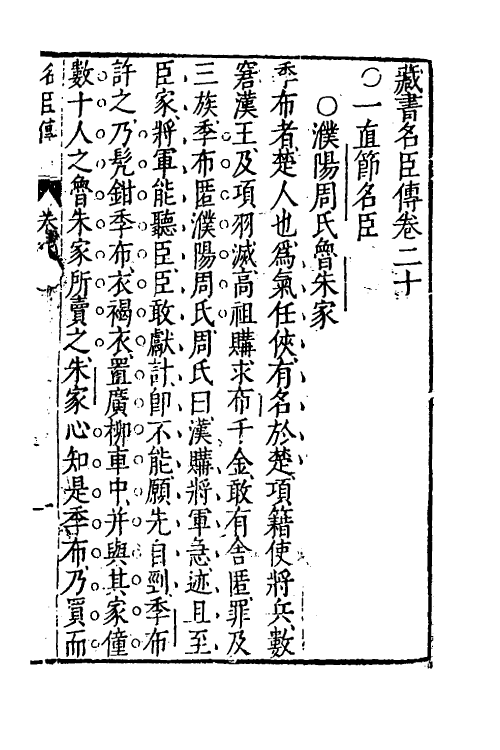 藏書名臣傳卷二十
〇一直節名臣
〇濮陽周氏魯朱家
季布者楚人也爲氣任俠有名於楚項籍使將兵數
窘漢王及項羽滅高祖購求布千金敢有舍匿罪及
三族季布匿濮陽周氏周氏曰漢購將軍急迹且至
臣家將軍能聽臣臣敢獻計卽不能願先自剄季布
許之乃髡鉗季布衣褐衣置廣柳車中并與其家僮
數十人之魯朱家所賣之朱家心知是季布乃買而
名臣傳
卷
一